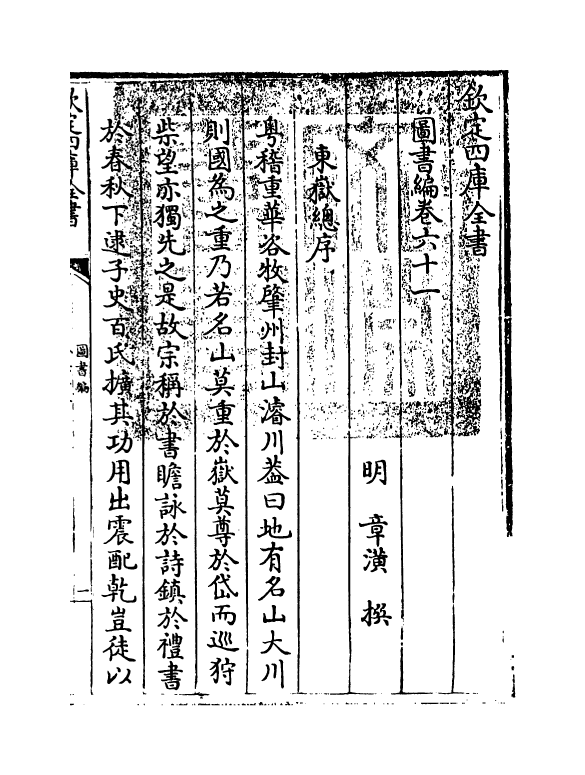 欽定四庫全書
圖書編卷六十一
明　章潢　撰
東嶽總序
粤稽重華咨牧肇州封山濬川葢曰地有名山大川
則國為之重乃若名山莫重於嶽莫尊於岱而巡狩
柴望亦獨先之是故宗稱於書瞻詠於詩鎮於禮書
於春秋下逮子史百氏擴其功用出震配乾豈徒以
欽定四庫全書
圖書編
一